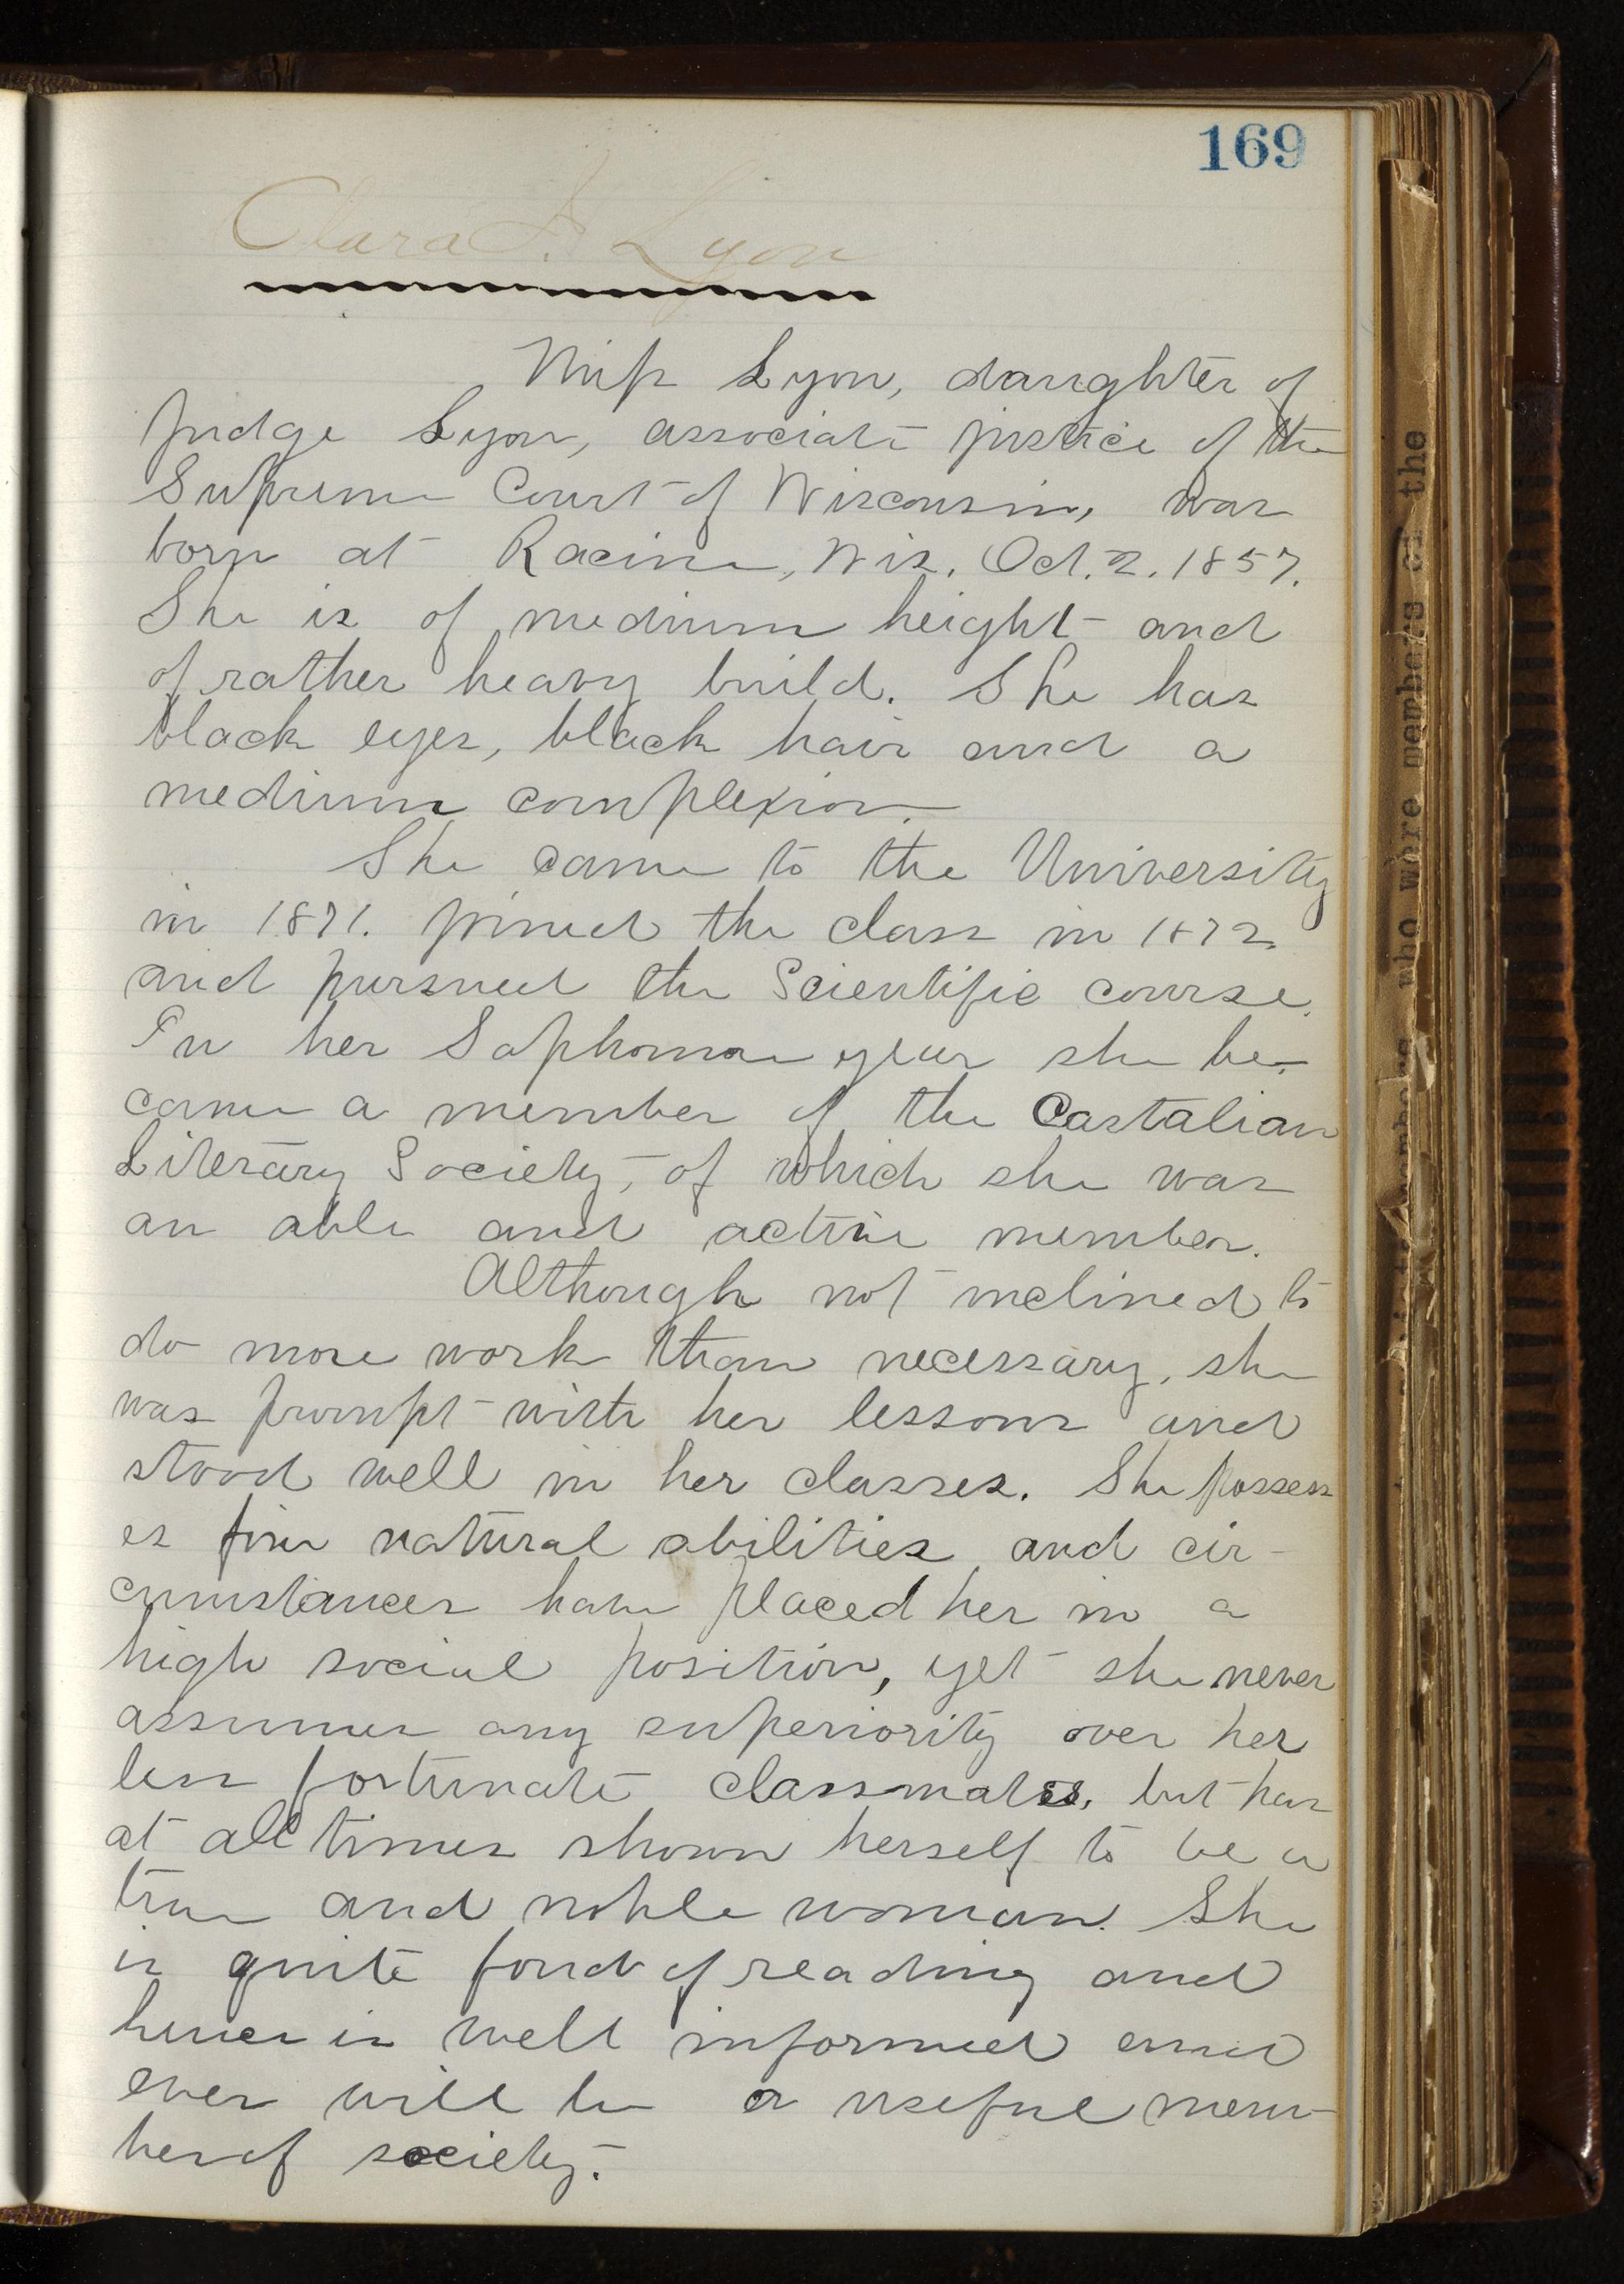 169
Clara A. Lyon
Miss Lyon, daughter of
Judge Lyon, associate justice of the
Supreme Court of Wisconsin, was
born at Racine, Wis. Oct. 2. 1857.
She is of medium height and
of rather heavy build. She has
black eyes, black hair and a
medium complexion.
She came to the University
in 1871. joined the class in 1872
and pursued the Scientific course.
In her Sophomore year she be-
came a member of the Castalian
Literary Society, of which she was
an able and active member.
Although not inclined to
do more work than necessary, she
was prompt with her lessons and
stood well in her classes. She possess
es fine natural abilities and cir-
cumstances have placed her in a
high social position, yet she never
assumes any superiority over her
less fortunate classmates, but has
at all times shown herself to be a
true and noble woman. She
is quite fond of reading and
hence is well informed and
ever will be a useful mem-
ber of society.
who were members of the